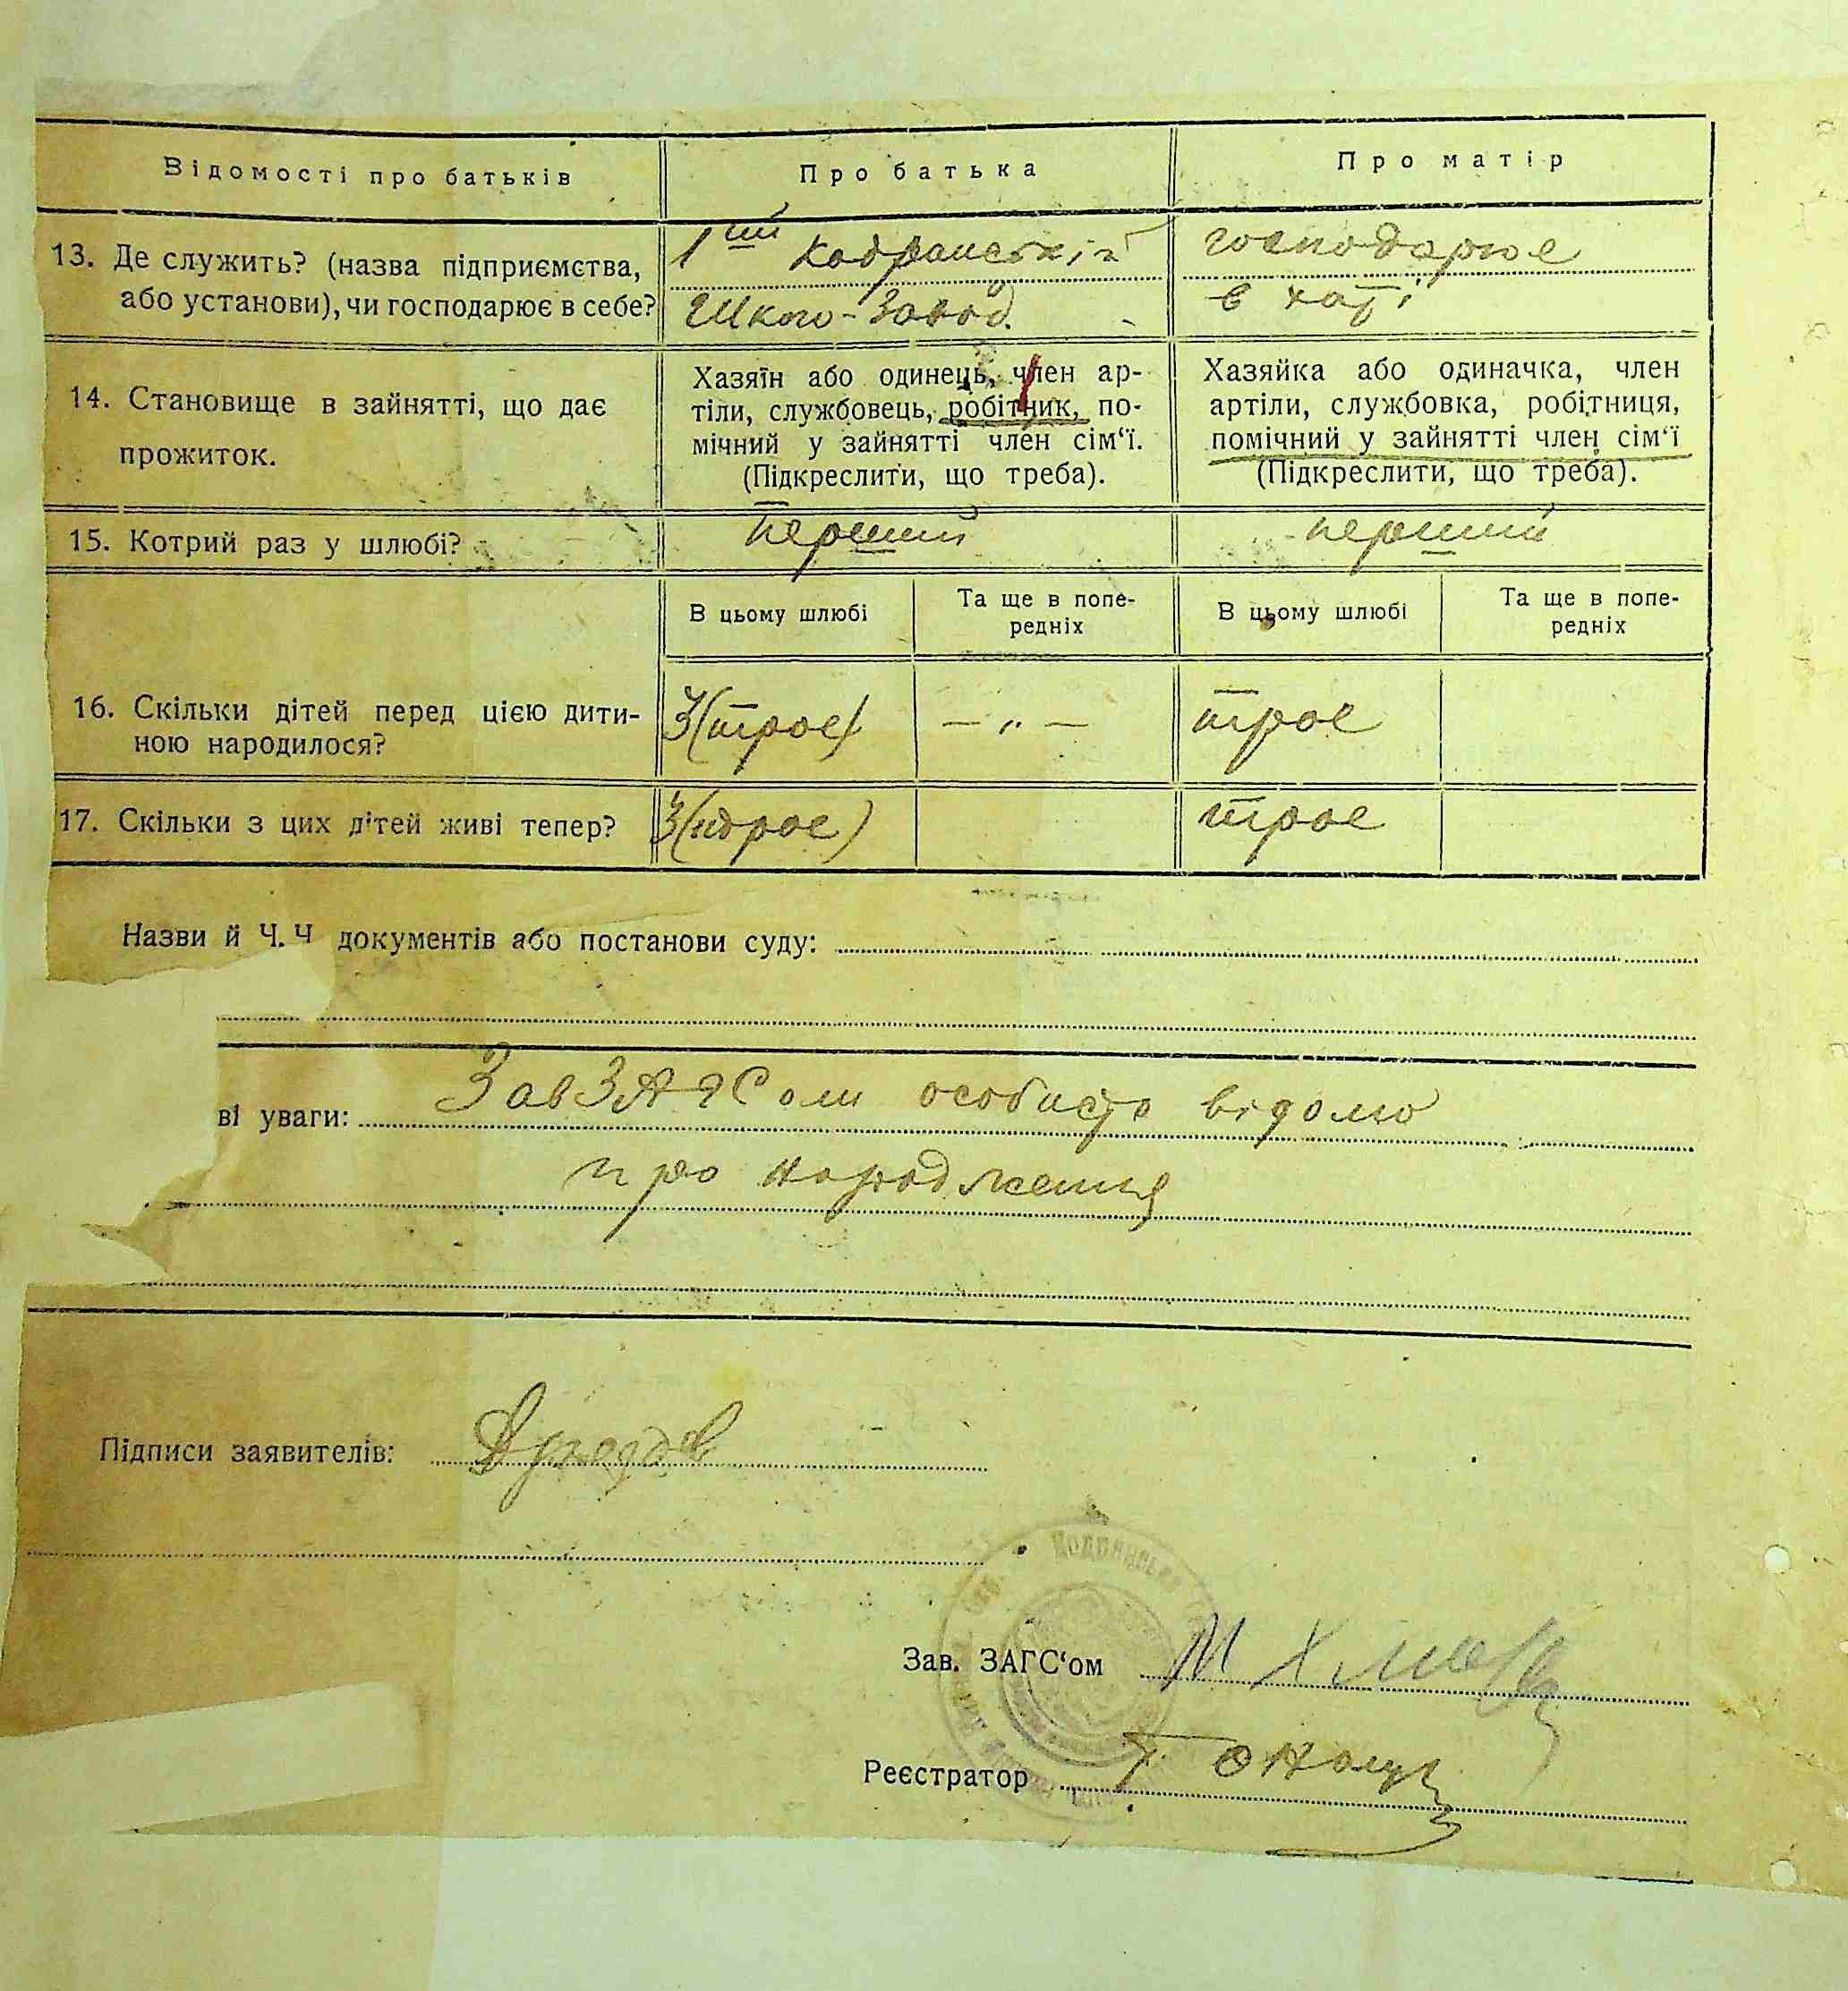 Відомості про батьків
Про батька
Про матір
13. Де служить? (назва підприємства,
або установи), чи господарює в себе?
1ший Кодранський
Шкло-Завод.
господарює
в хаті
14. Становище в зайнятті, що дає
прожиток.
Хазяїн або одинець, член ар-
тіли, службовець, робітник, по-
мічний у зайнятті член сім‘ї.
(Підкреслити, що треба).
Хазяйка або одиначка, член
артіли, службовка, робітниця,
помічний у зайнятті член сім‘ї
(Підкреслити, що треба).
15. Котрий раз у шлюбі?
перший
перший
В цьому шлюбі
Та ще в попе-
редніх
В цьому шлюбі
Та ще в попе-
редніх
16. Скільки дітей перед цією дити-
ною народилося?
3(троє)
— „ —
троє
17. Скільки з цих дітей живі тепер?
3(троє)
троє
Назви й Ч.Ч документів або постанови суду:
ві уваги: ЗавЗАГСом особисто відомо
про народження
Підписи заявителів:
Зав. ЗАГС‘ом
Реєстратор